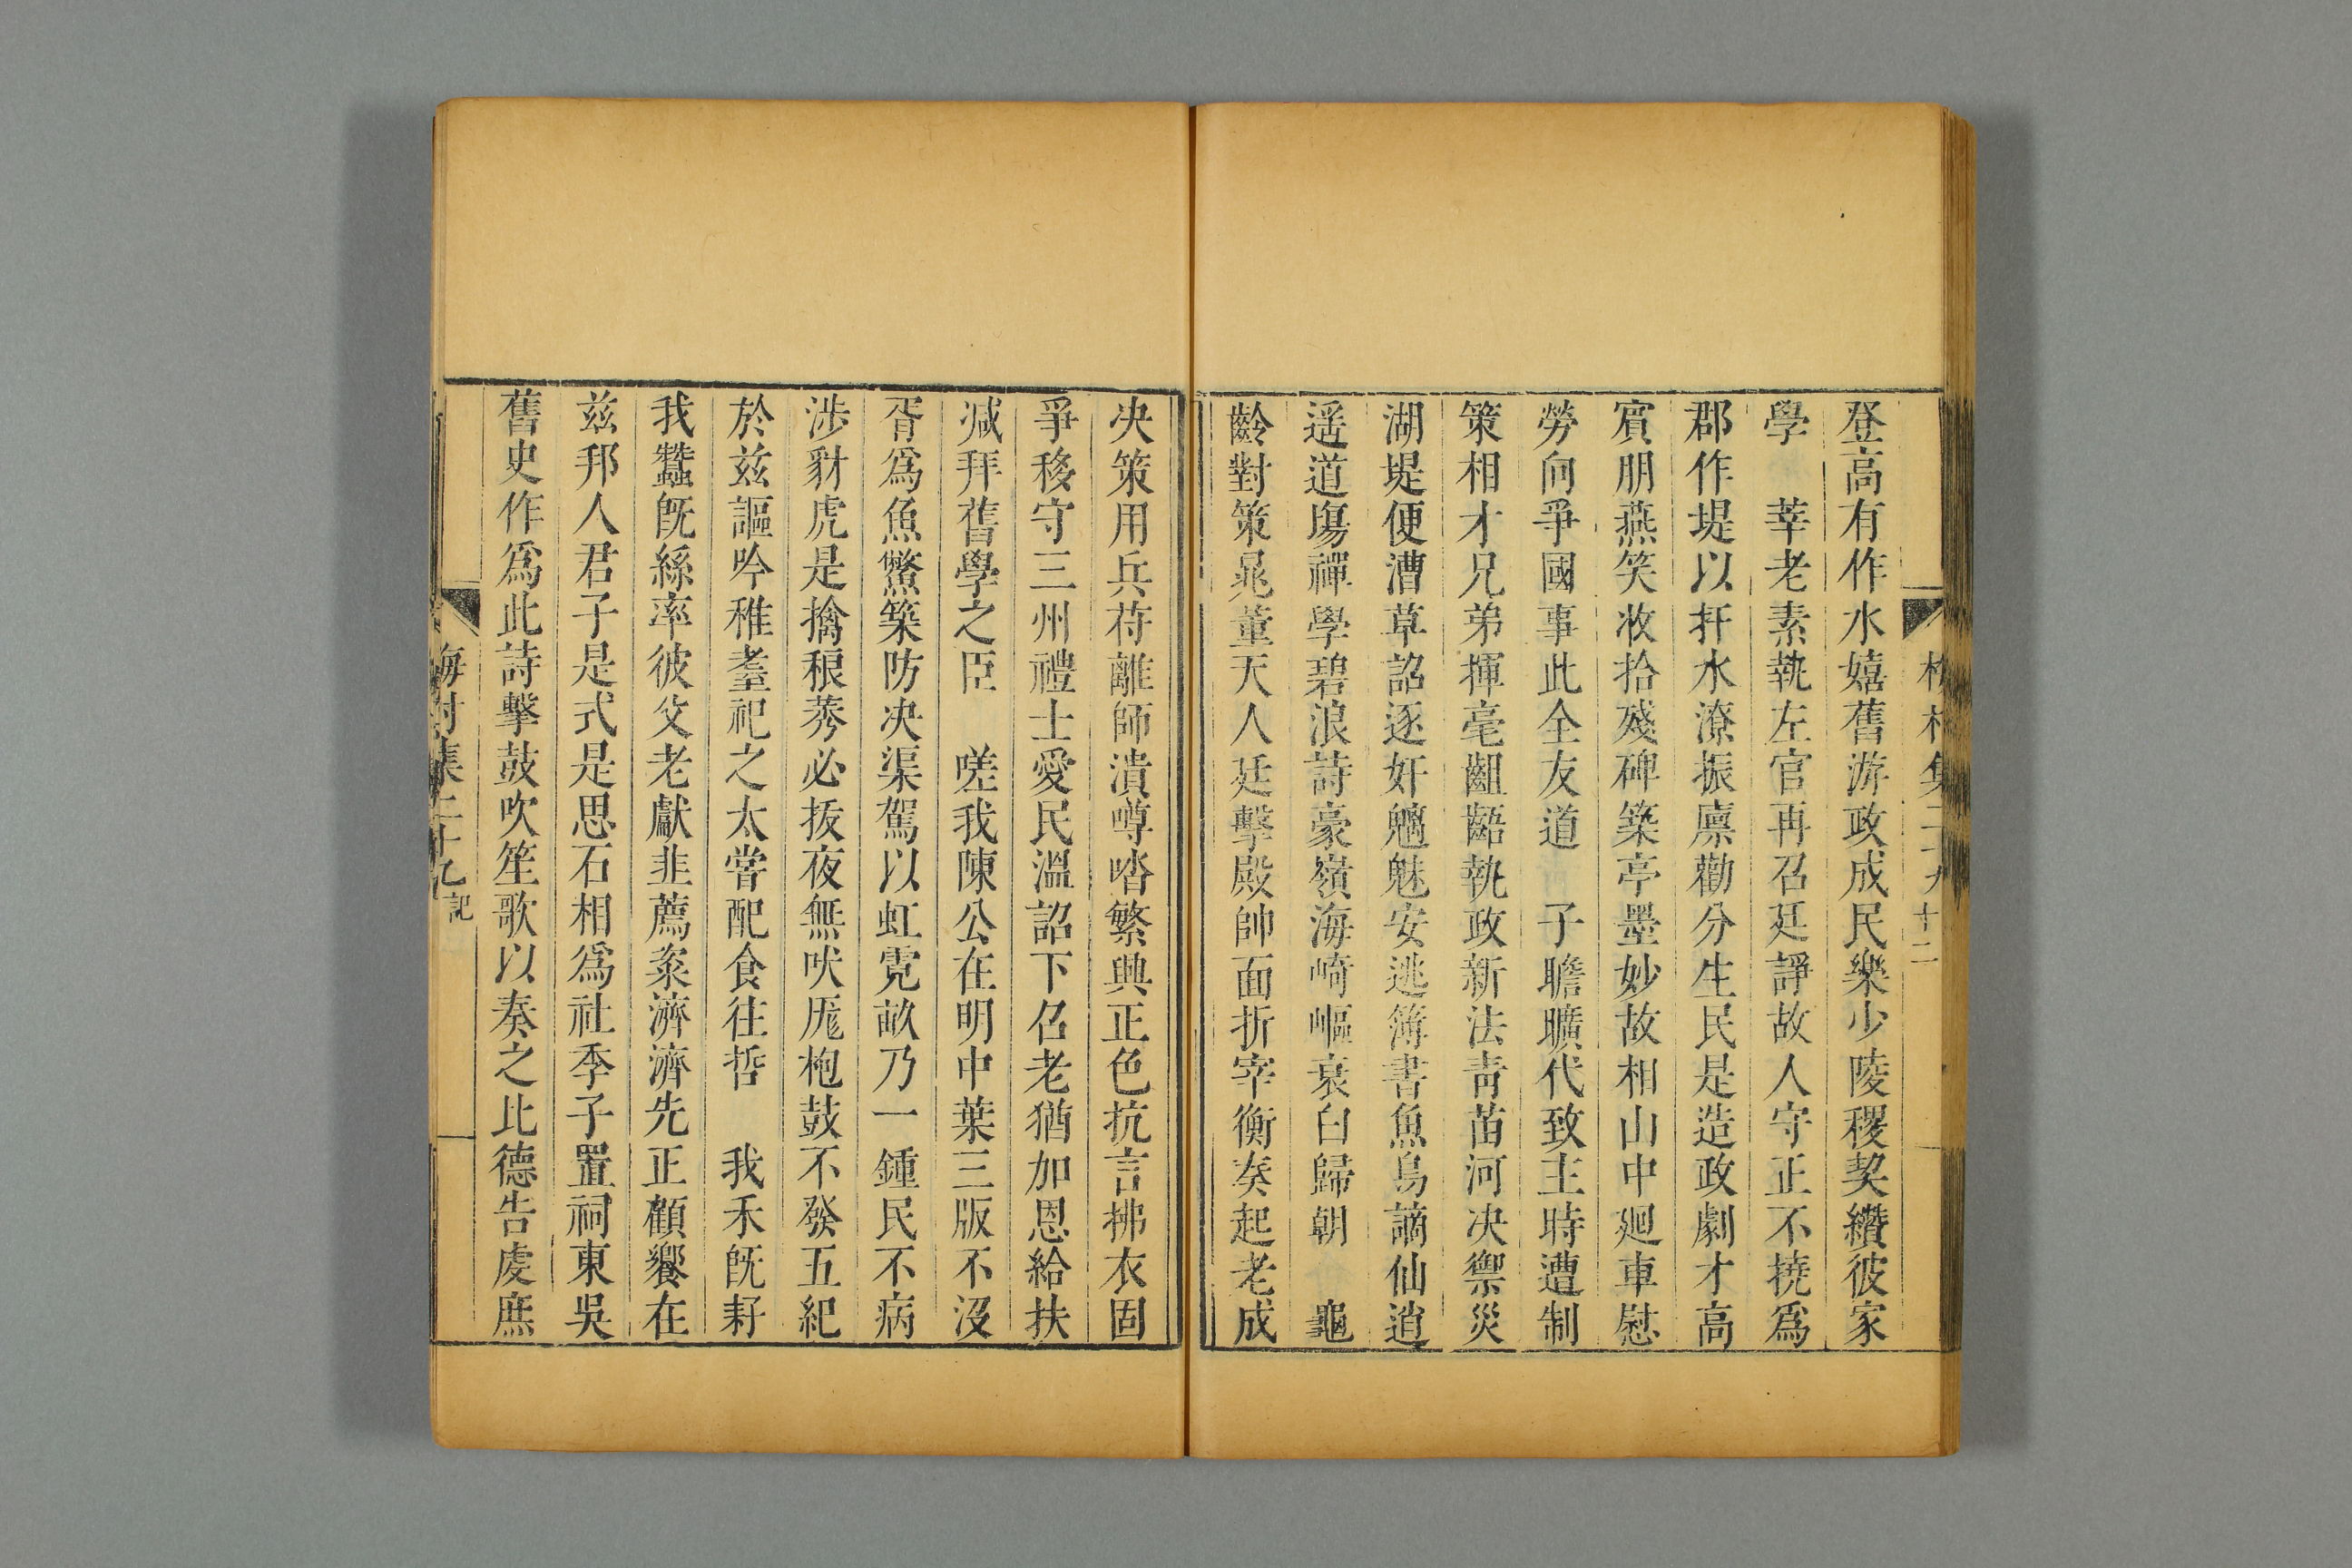 登高有作水嬉舊游政成民樂少陵稷契纘彼家
學　莘老素執左官再召廷諍故人守正不撓爲
郡作堤以扞水潦振廪勸分生民是造政劇才高
賓朋燕笑收拾殘碑築亭墨妙故相山中廻車慰
勞向爭國事此全友道　子瞻曠代致主時遭制
策相才兄弟揮毫齟齬執政新法靑苗河决禦災
湖堤便漕草詔逐奸魑魅安逃簿書魚鳥謫仙逍
遥道塲禪學碧浪詩豪嶺海崎嶇哀白歸朝　龜
齡對策晁董天人廷擊殿帥面折宰衡奏起老成
决策用兵苻離師潰噂喍繁興正色抗言拂衣固
爭移守三州禮士愛民溫詔下召老猶加恩給扶
减拜舊學之臣　嗟我陳公在明中葉三版不沒
胥爲魚鱉築防决渠駕以虹霓畝乃一鍾民不病
涉豺虎是擒稂莠必拔夜無吠厖枹鼓不發五紀
於兹謳吟稚耋祀之太嘗配食往哲　我禾旣耔
我蠶旣絲率彼父老獻韭薦粢濟濟先正顧饗在
兹邦人君子是式是思石相爲社季子置祠東吳
舊史作爲此詩擊鼓吹笙歌以奏之比德告虔庶
梅村集二十九記